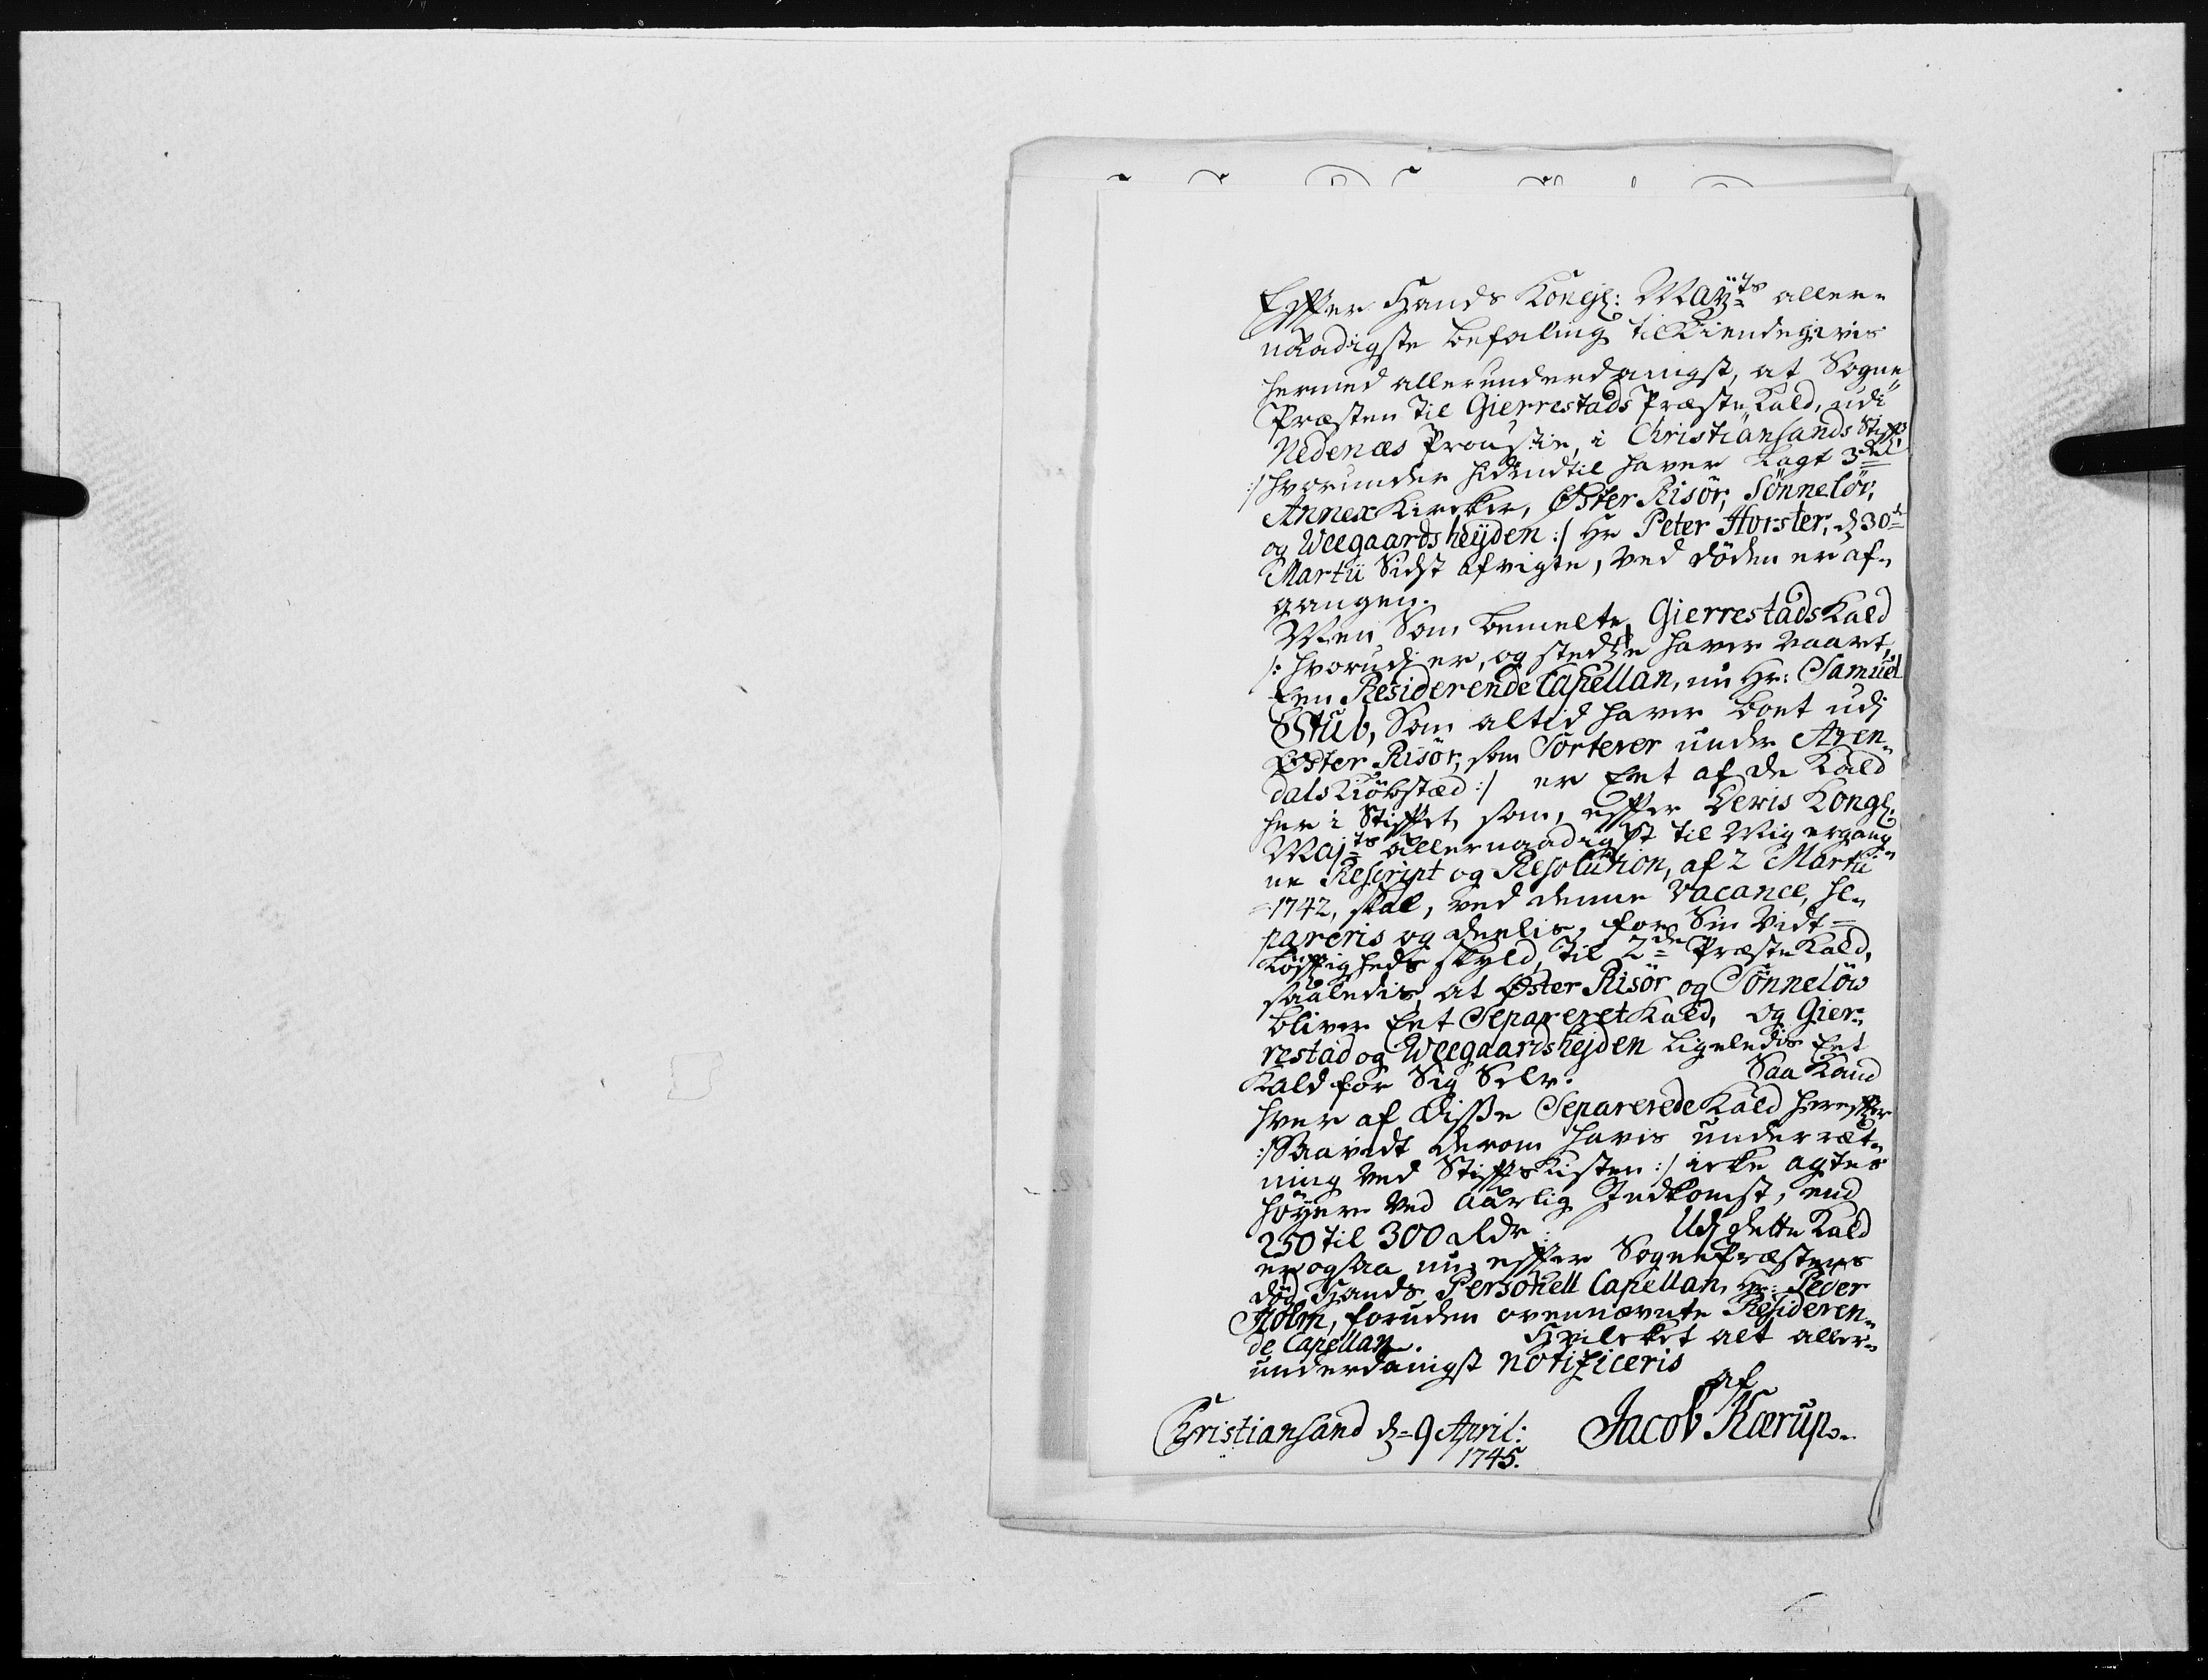 Effter Hands Kongl: Mayts aller-
naadigste befaling tilkiendegivis
hermed allerunderdanigst, at Sogne
Præsten til Gierrestads Præste Kald, udi
Nedenæs Proustie, i Christiansands Stifft,
:/ hvorunder hidindtil haver Lagt 3de
Annex Kircker, Øster Risör, Sönnelöv,
og Weegaardsheÿden :/ Hr Peter Horster, d 30te
Martii Sidst afvigte, ved döden er af-
gangen.
Men Som bemelte Gierrestads Kald
/: hvorudj er, og stedse haver vaaret,
Een Residerende Capellan, nu Hr: Samuel
Stub, Som altid haver boet udj
Øster Risör, som Sorterer under Aren-
dals Kiöbstæd :/ er Eet af de Kald
her i Stifftet, som, effter Deris Kongl.
Majts allernaadigst til Mig ergang-
ne Rescript og Resolution, af 2 Martii
1742, skal, ved denne Vacance, se-
pareris og deelis, for Sin Vidt-
löfftigheds skyld, til 2de Præste Kald,
saaledis, at Øster Risör og Sönnelöw
bliver Eet Separeret Kald, og Gier-
restad og Weegaardshejden ligeledis Eet
Kald for Sig Selv. Saa Kand
hver af disse Separerede Kald hereffter
:/ Saavidt derom havis underret-
ning ved Stiffts Kisten :/ icke agtes
höyere ved aarlig Indkomst, end
250 til 300 Rdr: Udj dette Kald
er ogsaa nu, effter Sogne Præstens
död, Hands Personell Capellan, Hr: Peder
Holm, foruden ovennævnte Resideren-
de Capellan. Hvilcket alt aller-
underdanigst notificeris
af
Christiansand d= 9 April: Jacob Kærup.
1745.